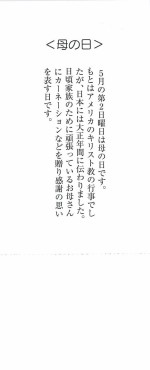 ＜母の日＞
５月の第２日曜日は母の日です。
もとはアメリカのキリスト教の行事でし
たが、日本には大正年間に伝わりました。
日頃家族のために頑張っているお母さん
にカーネーションなどを贈り感謝の思い
を表す日です。